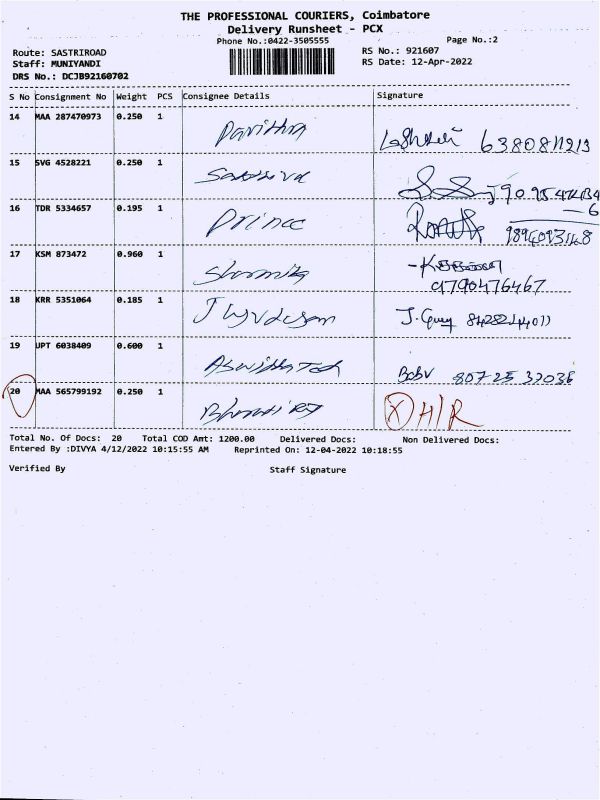 THE PROFESSIONAL COURIERS, Coimbatore
Delivery Runsheet - PCX
Phone No.:0422-3505555
Page No.:2
Route: SASTRIROAD
RS No.: 921607
Staff: MUNIYANDI
RS Date: 12-Apr-2022
DRS No.: DCJB92160702
S No Consignment No Weight PCS Consignee Details Signature
14 MAA 287470973 0.250 1 Pavithra 6380811213
15 SVG 4528221 0.250 1
16 TDR 5334657 0.195 1 Prince
17 KSM 873472 0.960 1 Sharmila
9790476467
18 KRR 5351064 0.185 1
19 UPT 6038409 0.600 1 807 25 33036
20 MAA 565799192 0.250 1 X H/R
Total No. Of Docs: 20 Total COD Amt: 1200.00 Delivered Docs: Non Delivered Docs:
Entered By :DIVYA 4/12/2022 10:15:55 AM Reprinted On: 12-04-2022 10:18:55
Verified By Staff Signature